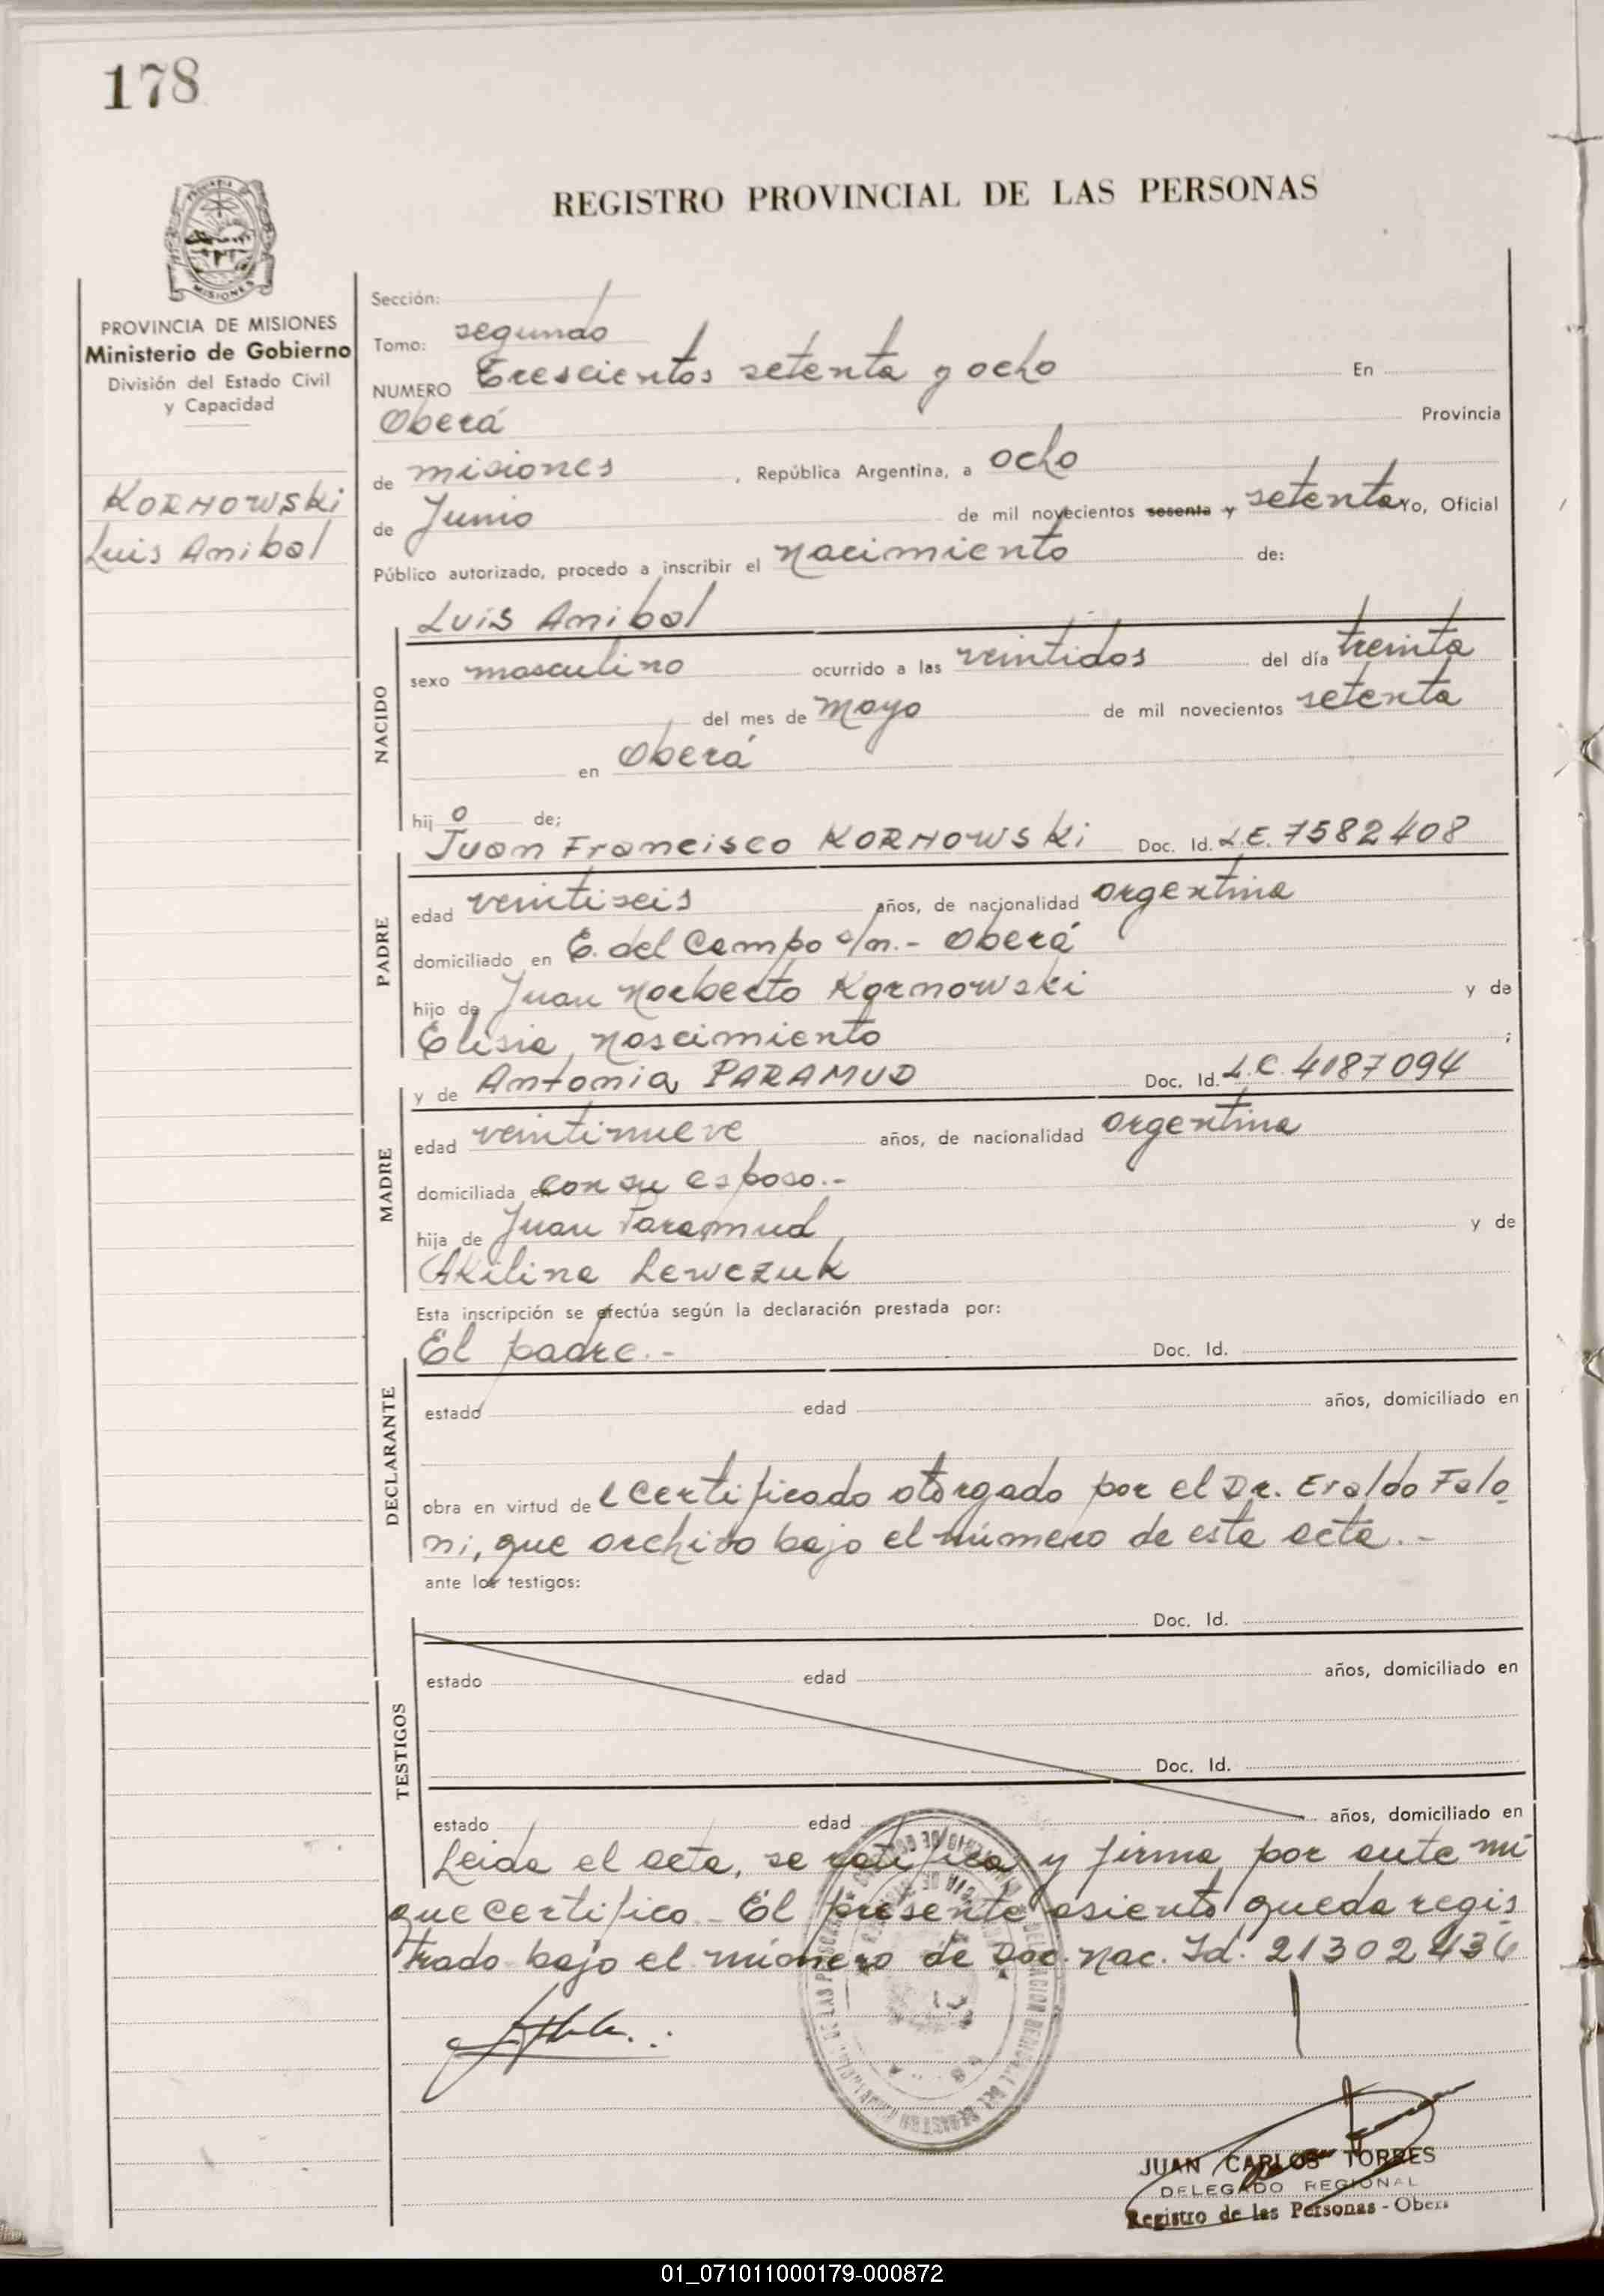 178
REGISTRO PROVINCIAL DE LAS PERSONAS
MISIONES
PROVINCIA DE MISIONES
Ministerio de Gobierno
División del Estado Civil
y Capacidad
KORNOWSKI
Luis Anibal
Sección:
Tomo: segundo
NUMERO Trescientos setenta y ocho En
Oberá Provincia
de misiones, República Argentina, a ocho
de Junio de mil novecientos sesenta y setenta Yo, Oficial
Público autorizado, procedo a inscribir el nacimiento de:
Luis Anibal
NACIDO
sexo masculino ocurrido a las veintidos del día treinta
del mes de mayo de mil novecientos setenta
en Oberá
hij o de:
Juan Francisco KORNOWSKI Doc. Id. L.E. 7582408
PADRE
edad veintiseis años, de nacionalidad argentina
domiciliado en E. del Campo s/n.- Oberá
hijo de Juan Norberto Kornowski y de
Elisia Nascimiento ;
y de Antonia PARAMUD Doc. Id. L.C. 4187094
MADRE
edad veintinueve años, de nacionalidad argentina
domiciliada en con su esposo.-
hija de Juan Paramud y de
Akilina Lewczuk
Esta inscripción se efectúa según la declaración prestada por:
El padre.- Doc. Id.
DECLARANTE
estado edad años, domiciliado en
obra en virtud de l certificado otorgado por el Dr. Eraldo Falo
ni, que archivo bajo el número de esta acta.-
ante los testigos:
Doc. Id.
TESTIGOS
estado edad años, domiciliado en
Doc. Id.
estado edad años, domiciliado en
Leida el acta, se ratifica y firma por ante mi
que certifico.- El presente asiento queda regis
trado bajo el número de Doc. Nac. Id. 21302436
JUAN CARLOS TORRES
DELEGADO REGIONAL
Registro de las Personas - Oberá
01_071011000179-000872